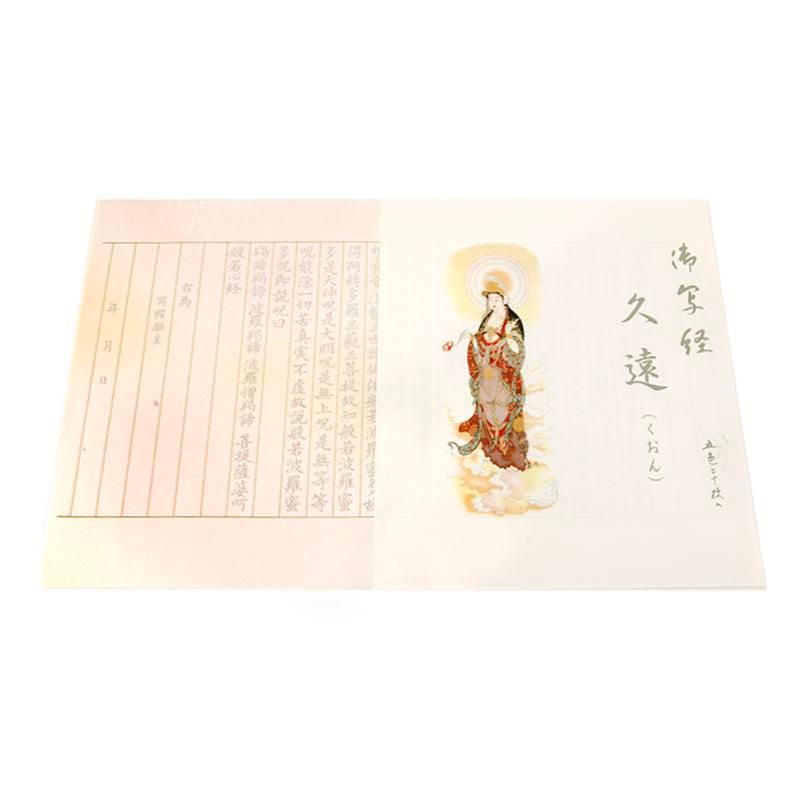 御写経
久遠
（くおん）
五色二十枚入
得阿耨多羅三藐三菩提故知般若波羅蜜
多是大神呪是大明呪是無上呪是無等等
呪能除一切苦真実不虚故説般若波羅蜜
多呪即説呪曰
羯諦羯諦 波羅羯諦 波羅僧羯諦 菩提薩婆呵
般若心経
右為
寫經願主
年 月 日